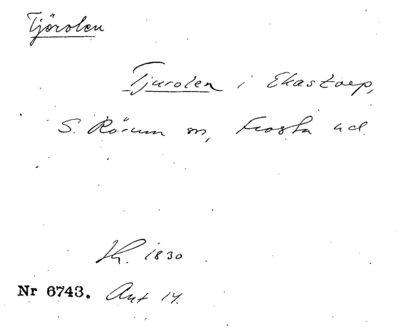 Tjörolen
Tjurolen i Ekastorp,
S. Rörum sn, Frosta hd.
Sk. 1830
Nr 6743. Ant 14.